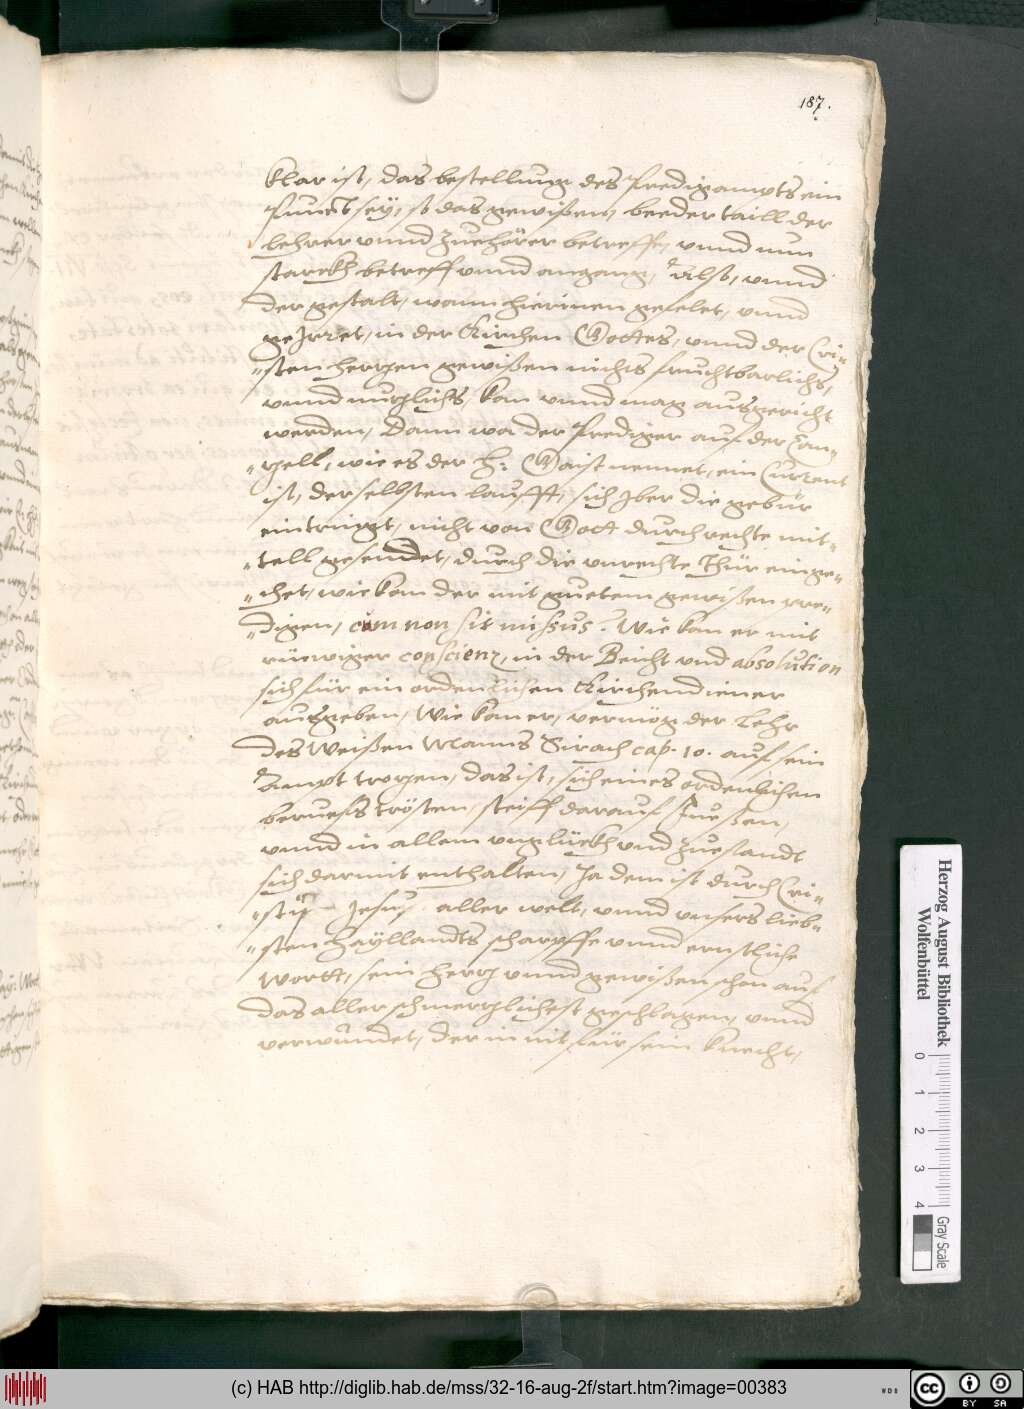 187.
klar ist, das bestellung des Predigampts ein
Punct sey, so das gewißen, beeder taill der
Lehrer vnnd Zuehörer betreffe, vnnd nun
starckh betreff vnnd angang, Also, vnnd
der gestalt, wann hierinen gefelet, vnnd
geJrret, in der Kirchen Gottes, vnnd der Cri-
sten herzen gewißen nichts fruchtbarlichs,
vnnd nuzlichs, kan vnnd mag ausgericht
werden, Dann wa der Prediger auf der Can-
zell, wie es der H: Gaist nennet, ein Current
ist, der selbsten laufft, sich Jber die gebür
eintringt, nicht von Gott durch rechte mit-
tell gesendet, durch die vnrechte Thür einge-
het, wie kan der mit guetem gewißen pre-
digen, cum non sit missus? Wie kan er mit
rüewiger conscienz, in der Beicht vnd absolution
sich für ein ordenlichen Kirchendiener
ausgeben, Wie kan er, vermög der Lehr
des Weißen Manns Sirach cap. 10. auf sein
Ampt trozen, das ist, sich eines ordenlichen
beruefs trösten, steiff darauf fueßen,
vnnd in allem vnglückh vnd Zuestandt
sich darmit enthalten, Ja dem ist durch Cri-
sti Jesu, aller welt, vnnd vnsers lieb-
sten Hayllandts scharpffe vnnd ernstliche
Wortt, sein herz vnnd gewißen schon auf
das allerschmerzlichest geschlagen, vnnd
verwundet, der in nit für sein Knecht,
Herzog August Bibliothek
Wolfenbüttel
0 1 2 3 4
Gray Scale
(c) HAB http://diglib.hab.de/mss/32-16-aug-2f/start.htm?image=00383
WDB
cc BY SA